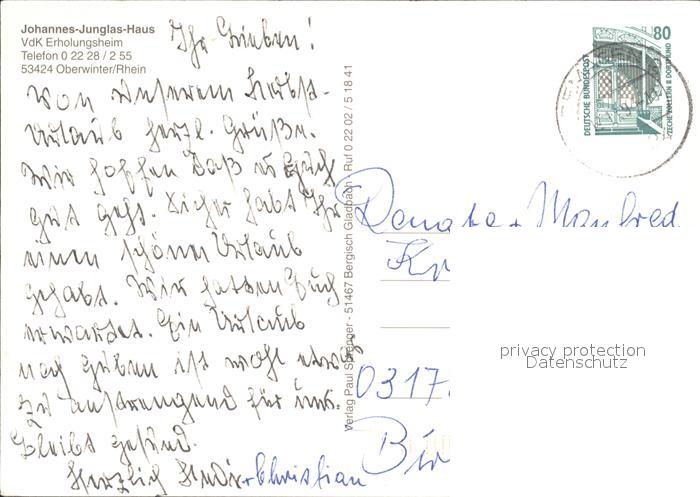 Johannes-Junglas-Haus
VdK Erholungsheim
Telefon 0 22 28 / 2 55
53424 Oberwinter/Rhein
Ihr Lieben!
Von unserem Herbst-
urlaub herzl. Grüße.
Wir hoffen daß es Euch
gut geht. Sicher habt Ihr
einen schönen Urlaub
gehabt. Wir hatten Euch
erwartet. Ein Urlaub
nach Guben ist wohl etwas
zu anstrengend für uns.
Bleibt gesund.
Herzlich + Christian
Verlag Paul - 51467 Bergisch Gladbach - Ruf 0 22 02 / 5 18 41
DEUTSCHE BUNDESPOST
80
ZECHE ZOLLERN II DORTMUND
Renate + Manfred
Kr
0317
privacy protection
Datenschutz